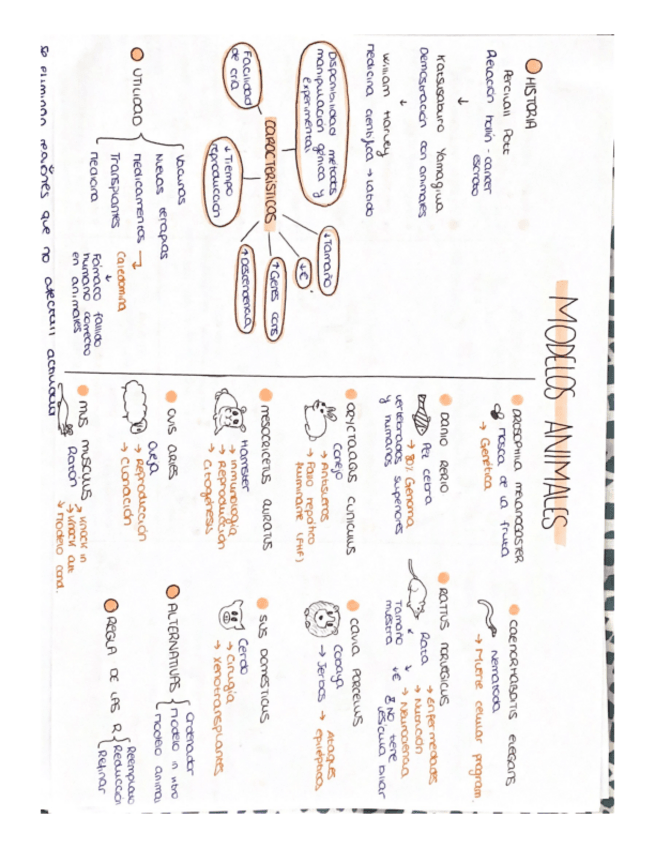 MODELOS ANIMALES
HISTORIA
Percivall Pott
Relación hollín - cáncer
escroto
↓
Katsusaburo Yamagiwa
Demostración con animales
↓
William Harvey
medicina científica → latido
CARACTERÍSTICAS
Disponibilidad métodos
manipulación génica y
experimental
Facilidad
de cría
↓ Tiempo
reproducción
↓ Tamaño
↓€
↑ Genes cons
↑ Descendencia
UTILIDAD
Vacunas
Nuevas terapias
Medicamentos →
Transplantes
Medicina
↓
Fármaco fallido
humano correcto
en animales
DROSOPHILA MELANOGASTER
Mosca de la fruta
→ Genética
DANIO RERIO
Pez cebra
→ 80% Genoma
vertebrados superiores
y humanos
ORYCTOLAGUS CUNICULUS
Conejo
→ Antisueros
→ Fallo hepático
fulminante (FHF)
MESOCRICETUS AURATUS
Hámster
→ Inmunología
→ Reproducción
→ Citogénesis
OVIS ARIES
Oveja
→ Reproducción
→ Clonación
MUS MUSCULUS
Ratón
→ Knock in
→ Knock out
↓ modelo cond.
CAENORHABDITIS ELEGANS
Nematodo
→ Muerte celular program
RATTUS NORVEGICUS
Rata
→ Enfermedades
→ Nutrición
→ Neurociencia
Tamaño
muestra
↓€
& NO tiene
vesícula biliar
CAVIA PORCELLUS
Cobaya
→ Jerbos → Ataques
epilépticos
SUS DOMESTICUS
Cerdo
→ Cirugía
→ Xenotransplantes
ALTERNATIVAS
Ordenador
modelo in vitro
modelo animal
REGLA DE LAS R
Reemplazo
Reducción
Refinar